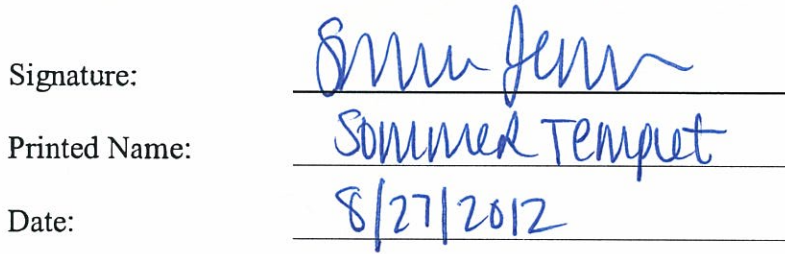 Signature:
Printed Name: Sommer Tempet
Date: 8/27/2012